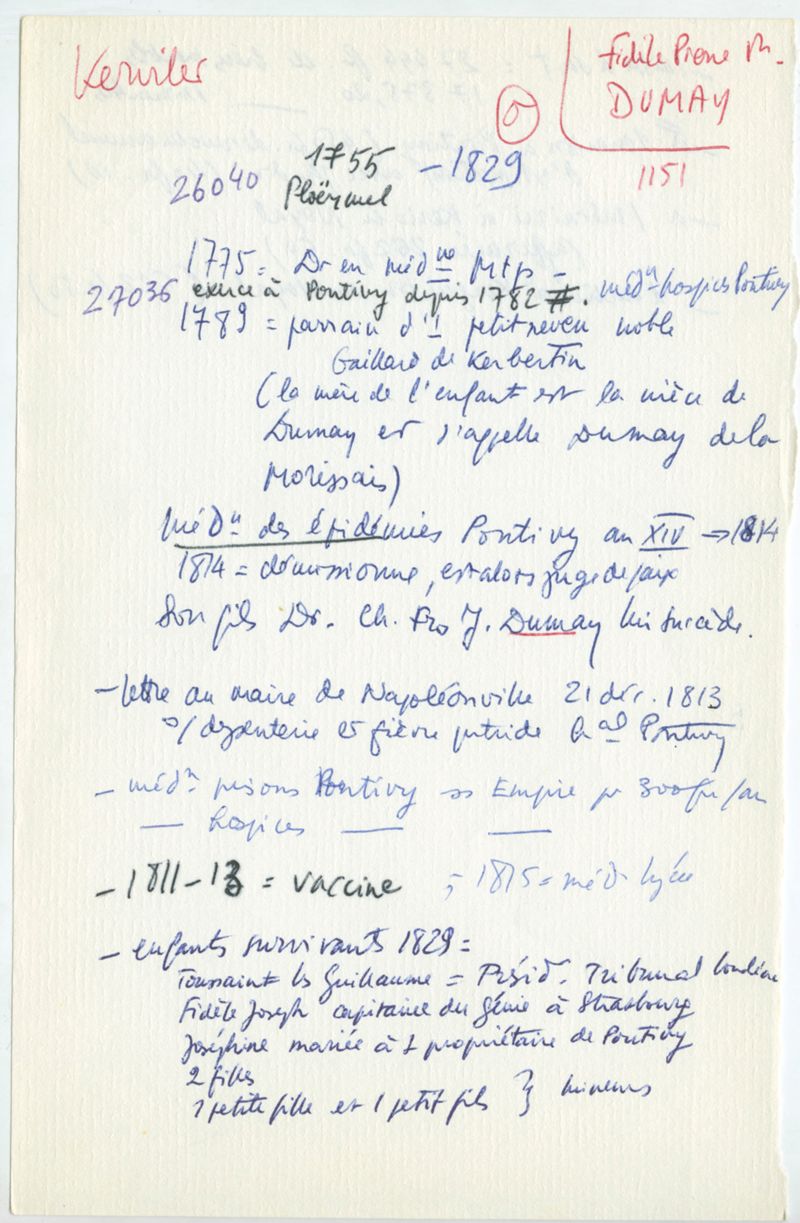 Kerviler
Fidèle Pierre M.
DUMAY
1151
1755 - 1829
26040 Ploërmel
1775 = Dr en médne Mtp -
27036 exerce à Pontivy depuis 1782 #. médn hospices Pontivy
1789 = parrain d'1 petit neveu noble
Gaillard de Kerbertin
(la mère de l'enfant est la nièce de
Dumay et s'appelle Dumay de la
Morissais)
Médn des épidémies Pontivy an XIV → 1814
1814 = démissionne, est alors juge de paix
Son fils Dr. Ch. Fro J. Dumay lui succède.
- lettre au maire de Napoléonville 21 déc. 1813
s/ dysenterie et fièvre putride hal Pontivy
- médn prisons Pontivy ss Empire pr 300 fr/an
— hospices — —
- 1811-13 = vaccine ; 1815 = méd lycée
- enfants survivants 1829 =
Toussaint Guillaume = Présid. Tribunal Loudéac
Fidèle Joseph capitaine du Génie à Strasbourg
Joséphine mariée à 1 propriétaire de Pontivy
2 filles
1 petite fille et 1 petit fils } mineurs